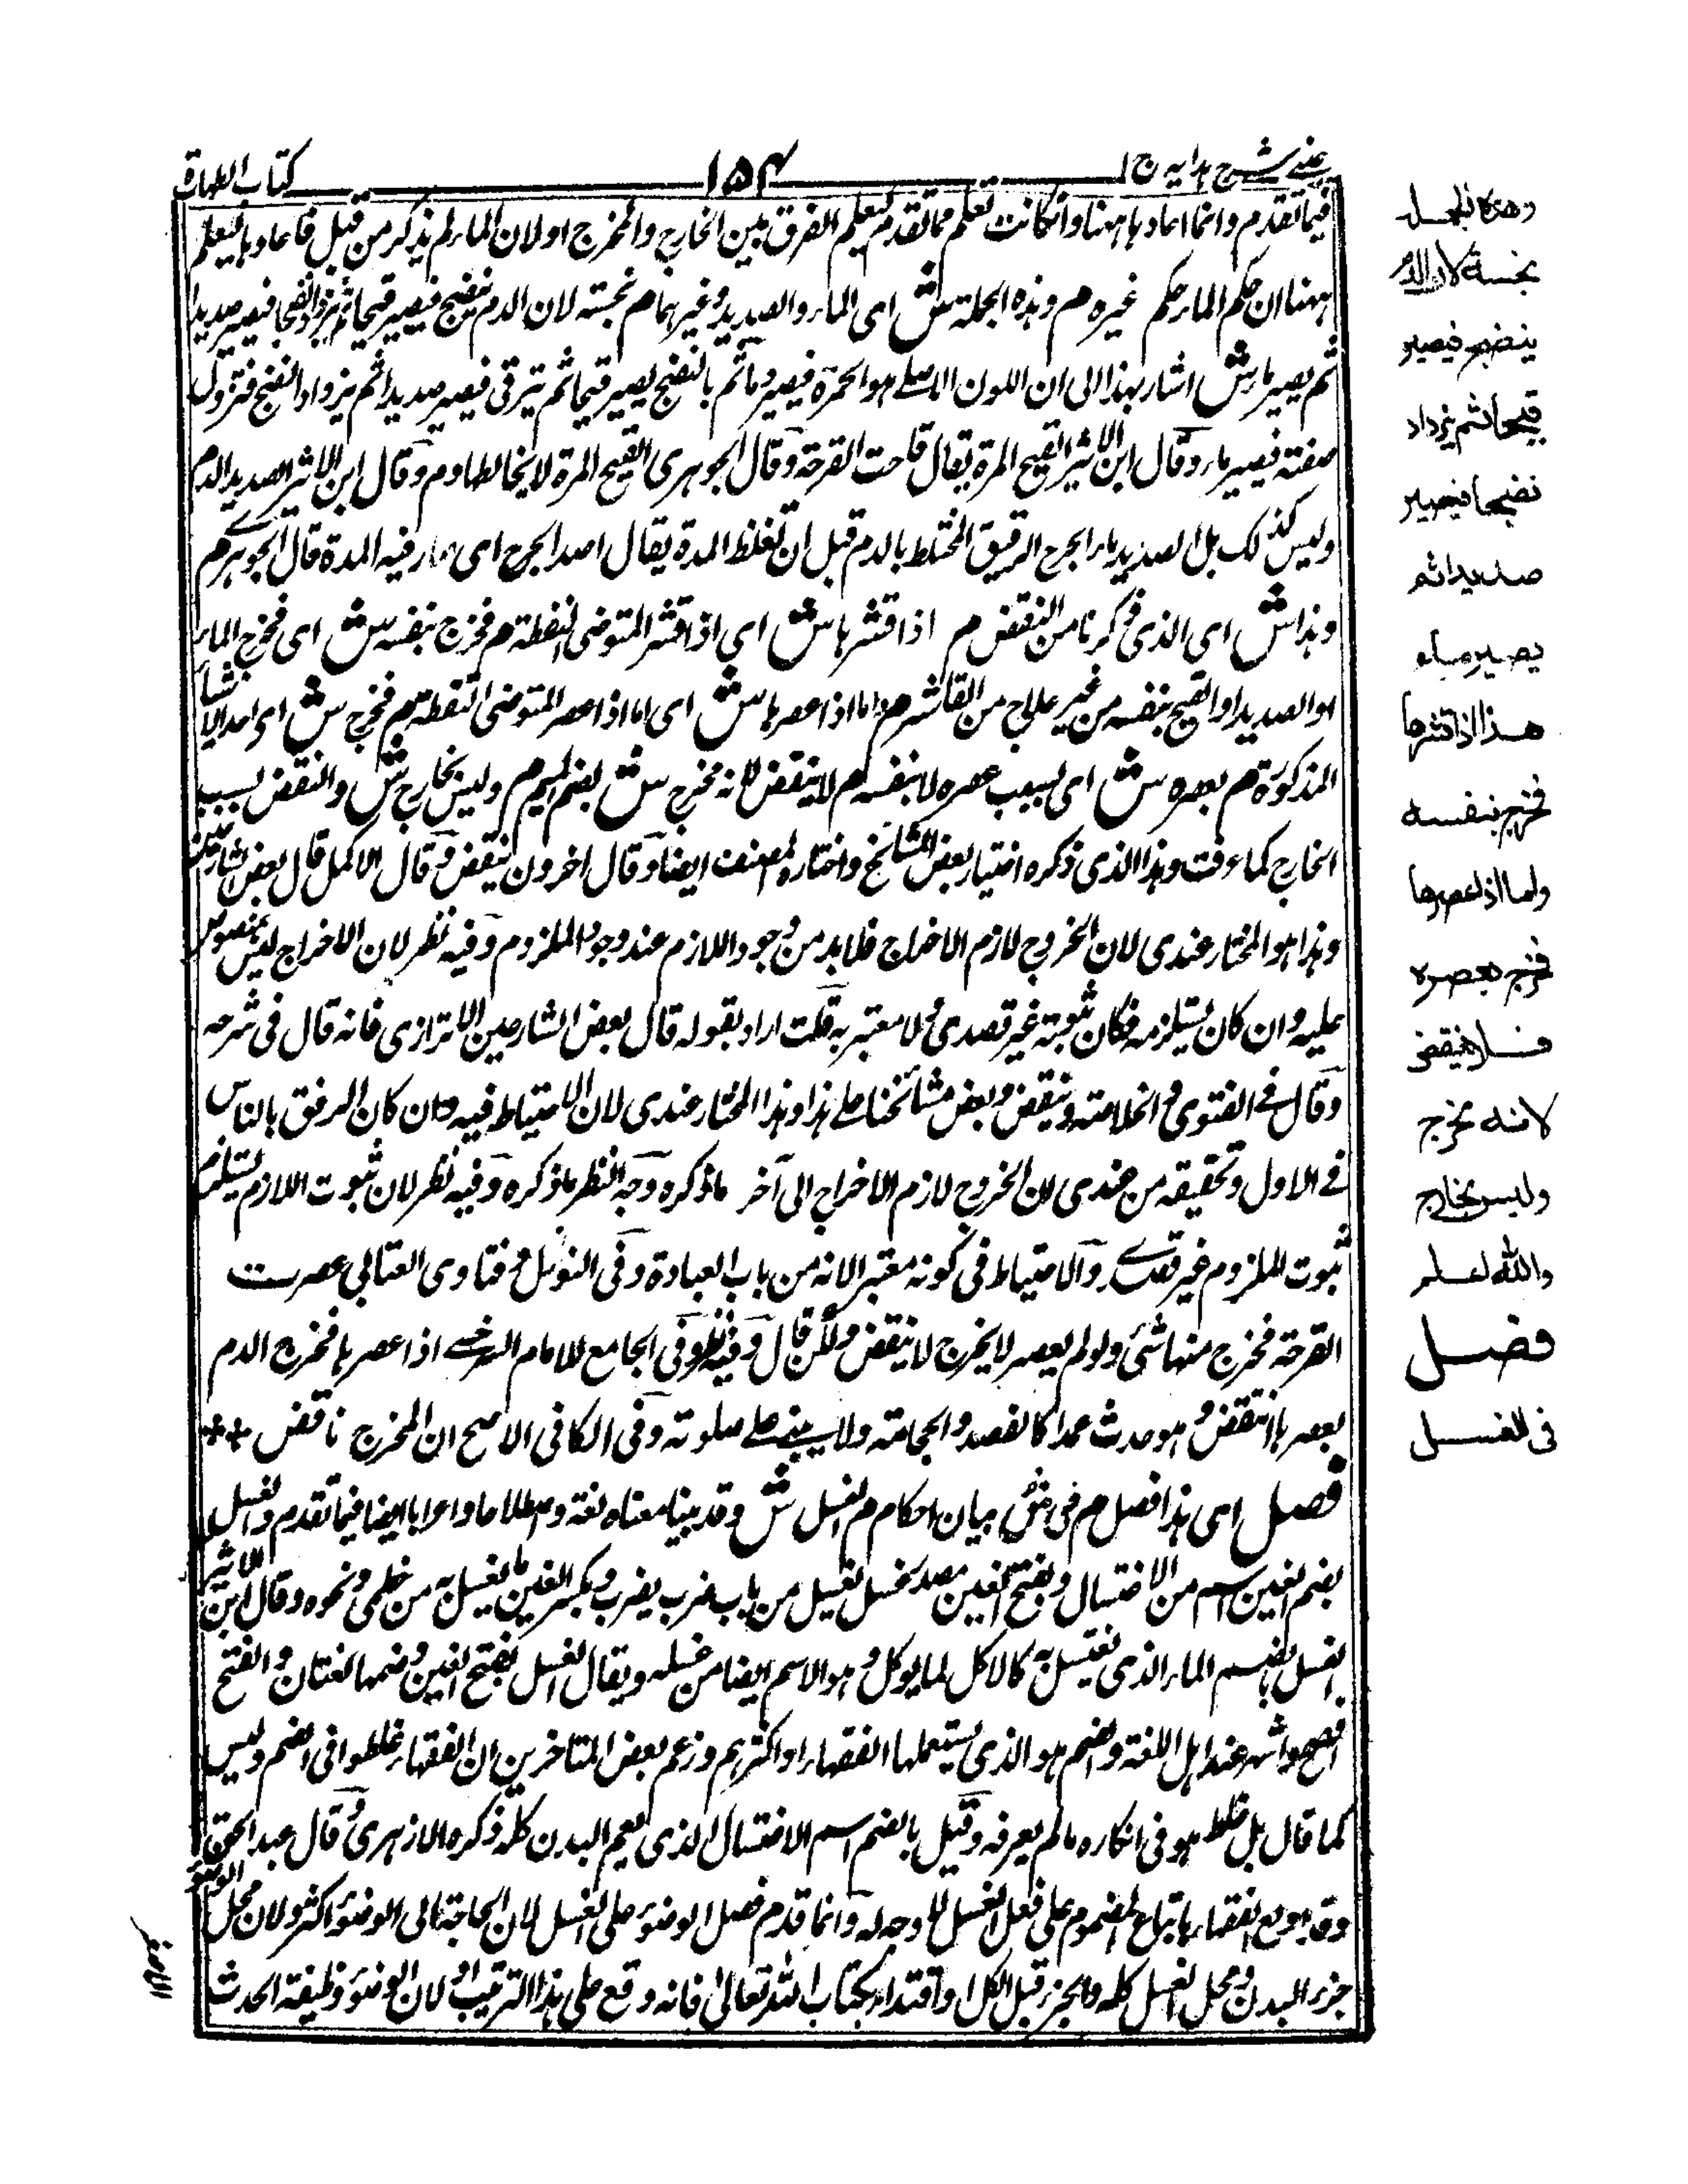 عينى شرح هدايه ج ١
١٥٤
كتاب الطهارة
فيما تقدم وانما اعادها ههنا وان كانت تعلم مما تقدم ليعلم الفرق بين الخارج والمخرج او لان الماء لم يذكر من قبل فاعادها ليعلم
ههنا ان حكم الماء حكم غيره م وهذه الجملة ش اى الماء والصديد وغيرهما م نجسة لان الدم ينضج فيصير قيحا ثم يزداد نضجا فيصير صديدا
ثم يصير ماء ش اشار بهذا الى ان اللون الاصلى هو الحمرة فيصير دما ثم بالنضج يصير قيحا ثم يترقى فيصير صديدا ثم يزداد النضج فتزول
صفته فيصير ماء وقال ابن الاثير القيح المرة يقال قاحت القرحة وقال الجوهرى القيح المرة لا يخالطها دم وقال ابن الاثير الصديد الدم
وليس كذلك بل الصديد ماء الجرح الرقيق المختلط بالدم قبل ان تغلظ المدة يقال اصد الجرح اى صار فيه المدة قال الجوهرى م
وهذا ش اى الذى ذكرنا من النقض م اذا قشرها ش اى اذا قشر المتوضى النفطة م فخرج بنفسه ش اى فخرج الماء
او الصديد او القيح بنفسه من غير علاج من القاشر م واما اذا عصرها ش اى اما اذا عصر المتوضى النفطة م فخرج ش اى احد الاشياء
المذكورة م بعصره ش اى بسبب عصره لا بنفسه م لا ينقض لانه مخرج ش بضم الميم م وليس بخارج ش والنقض بسبب
الخارج كما عرفت وهذا الذى ذكره اختيار بعض المشائخ واختاره المصنف ايضا وقال اخرون ينقض وقال الاكمل قال بعض الشارحين
وهذا هو المختار عندى لان الخروج لازم الاخراج فلا بد من وجود اللازم عند وجود الملزوم وفيه نظر لان الاخراج ليس بمنصوص
عليه وان كان يستلزمه فكان ثبوته غير قصدى ولا معتبر به قلت اراد بقوله قال بعض الشارحين الاترازى فانه قال فى شرحه
وقال فى الفتوى والخلاصة وينقض وبعض مشائخنا على هذا وهذا المختار عندى لان الاحتياط فيه وان كان الرفق بالناس
فى الاول وتحقيقه من عندى ان الخروج لازم الاخراج الى آخر ما ذكره وجه النظر ما ذكره وفيه نظر لان ثبوت اللازم يستلزم
ثبوت الملزوم غير قصدى والاحتياط فى كونه معتبرا لانه من باب العبادة وفى النوازل وفتاوى العتابى عصرت
القرحة فخرج منها شئ ولو لم يعصر لا يخرج لا ينقض ولكن قال وفيه نظر وفى الجامع للامام السرخسى اذا عصرها فخرج الدم
بعصرها انتقض وهو حدث عمدا كالفصد والحجامة ولا يبنى على صلوته وفى الكافى الاصح ان المخرج ناقض **
فصل اى هذا فصل م فى ش بيان احكام م الغسل ش وقد بينا معناه لغة واصطلاحا واعرابا ايضا فيما تقدم والغسل
بضم الغين اسم من الاغتسال وبفتح الغين مصدر غسل يغسل من باب ضرب يضرب وبكسر الغين ما يغسل به من خطمى ونحوه وقال ابن الاثير
الغسل بالضم الماء الذى يغتسل به كالاكل لما يوكل وهو الاسم ايضا من غسله ويقال الغسل بفتح الغين وضمها لغتان والفتح
افصح واشهر عند اهل اللغة والضم هو الذى يستعملها الفقهاء او اكثرهم وزعم بعض المتاخرين ان الفقهاء غلطوا فى الضم وليس
كما قال بل غلط هو فى انكاره ما لم يعرفه وقيل بالضم اسم الاغتسال الذى يعم البدن كله ذكره الازهرى وقال عبد الحق
وقد الفقهاء باتباع المضموم على فعل الغسل لا وجه له وانما قدم فصل الوضوء على الغسل لان الحاجة الى الوضوء اكثر ولان محل الوضوء
جزء البدن ومحل الغسل كله والجزء قبل الكل او اقتداء بكتاب الله تعالى فانه وقع على هذا الترتيب او لان الوضوء وظيفة الحدث
وهذه الجملة
نجسة لان الدم
ينضج فيصير
قيحا ثم يزداد
نضجا فيصير
صديدا ثم
يصير ماء
هذا اذا قشرها
فخرج بنفسه
واما اذا عصرها
فخرج بعصره
فلا ينقض
لانه مخرج
وليس بخارج
والله اعلم
فصل
فى الغسل